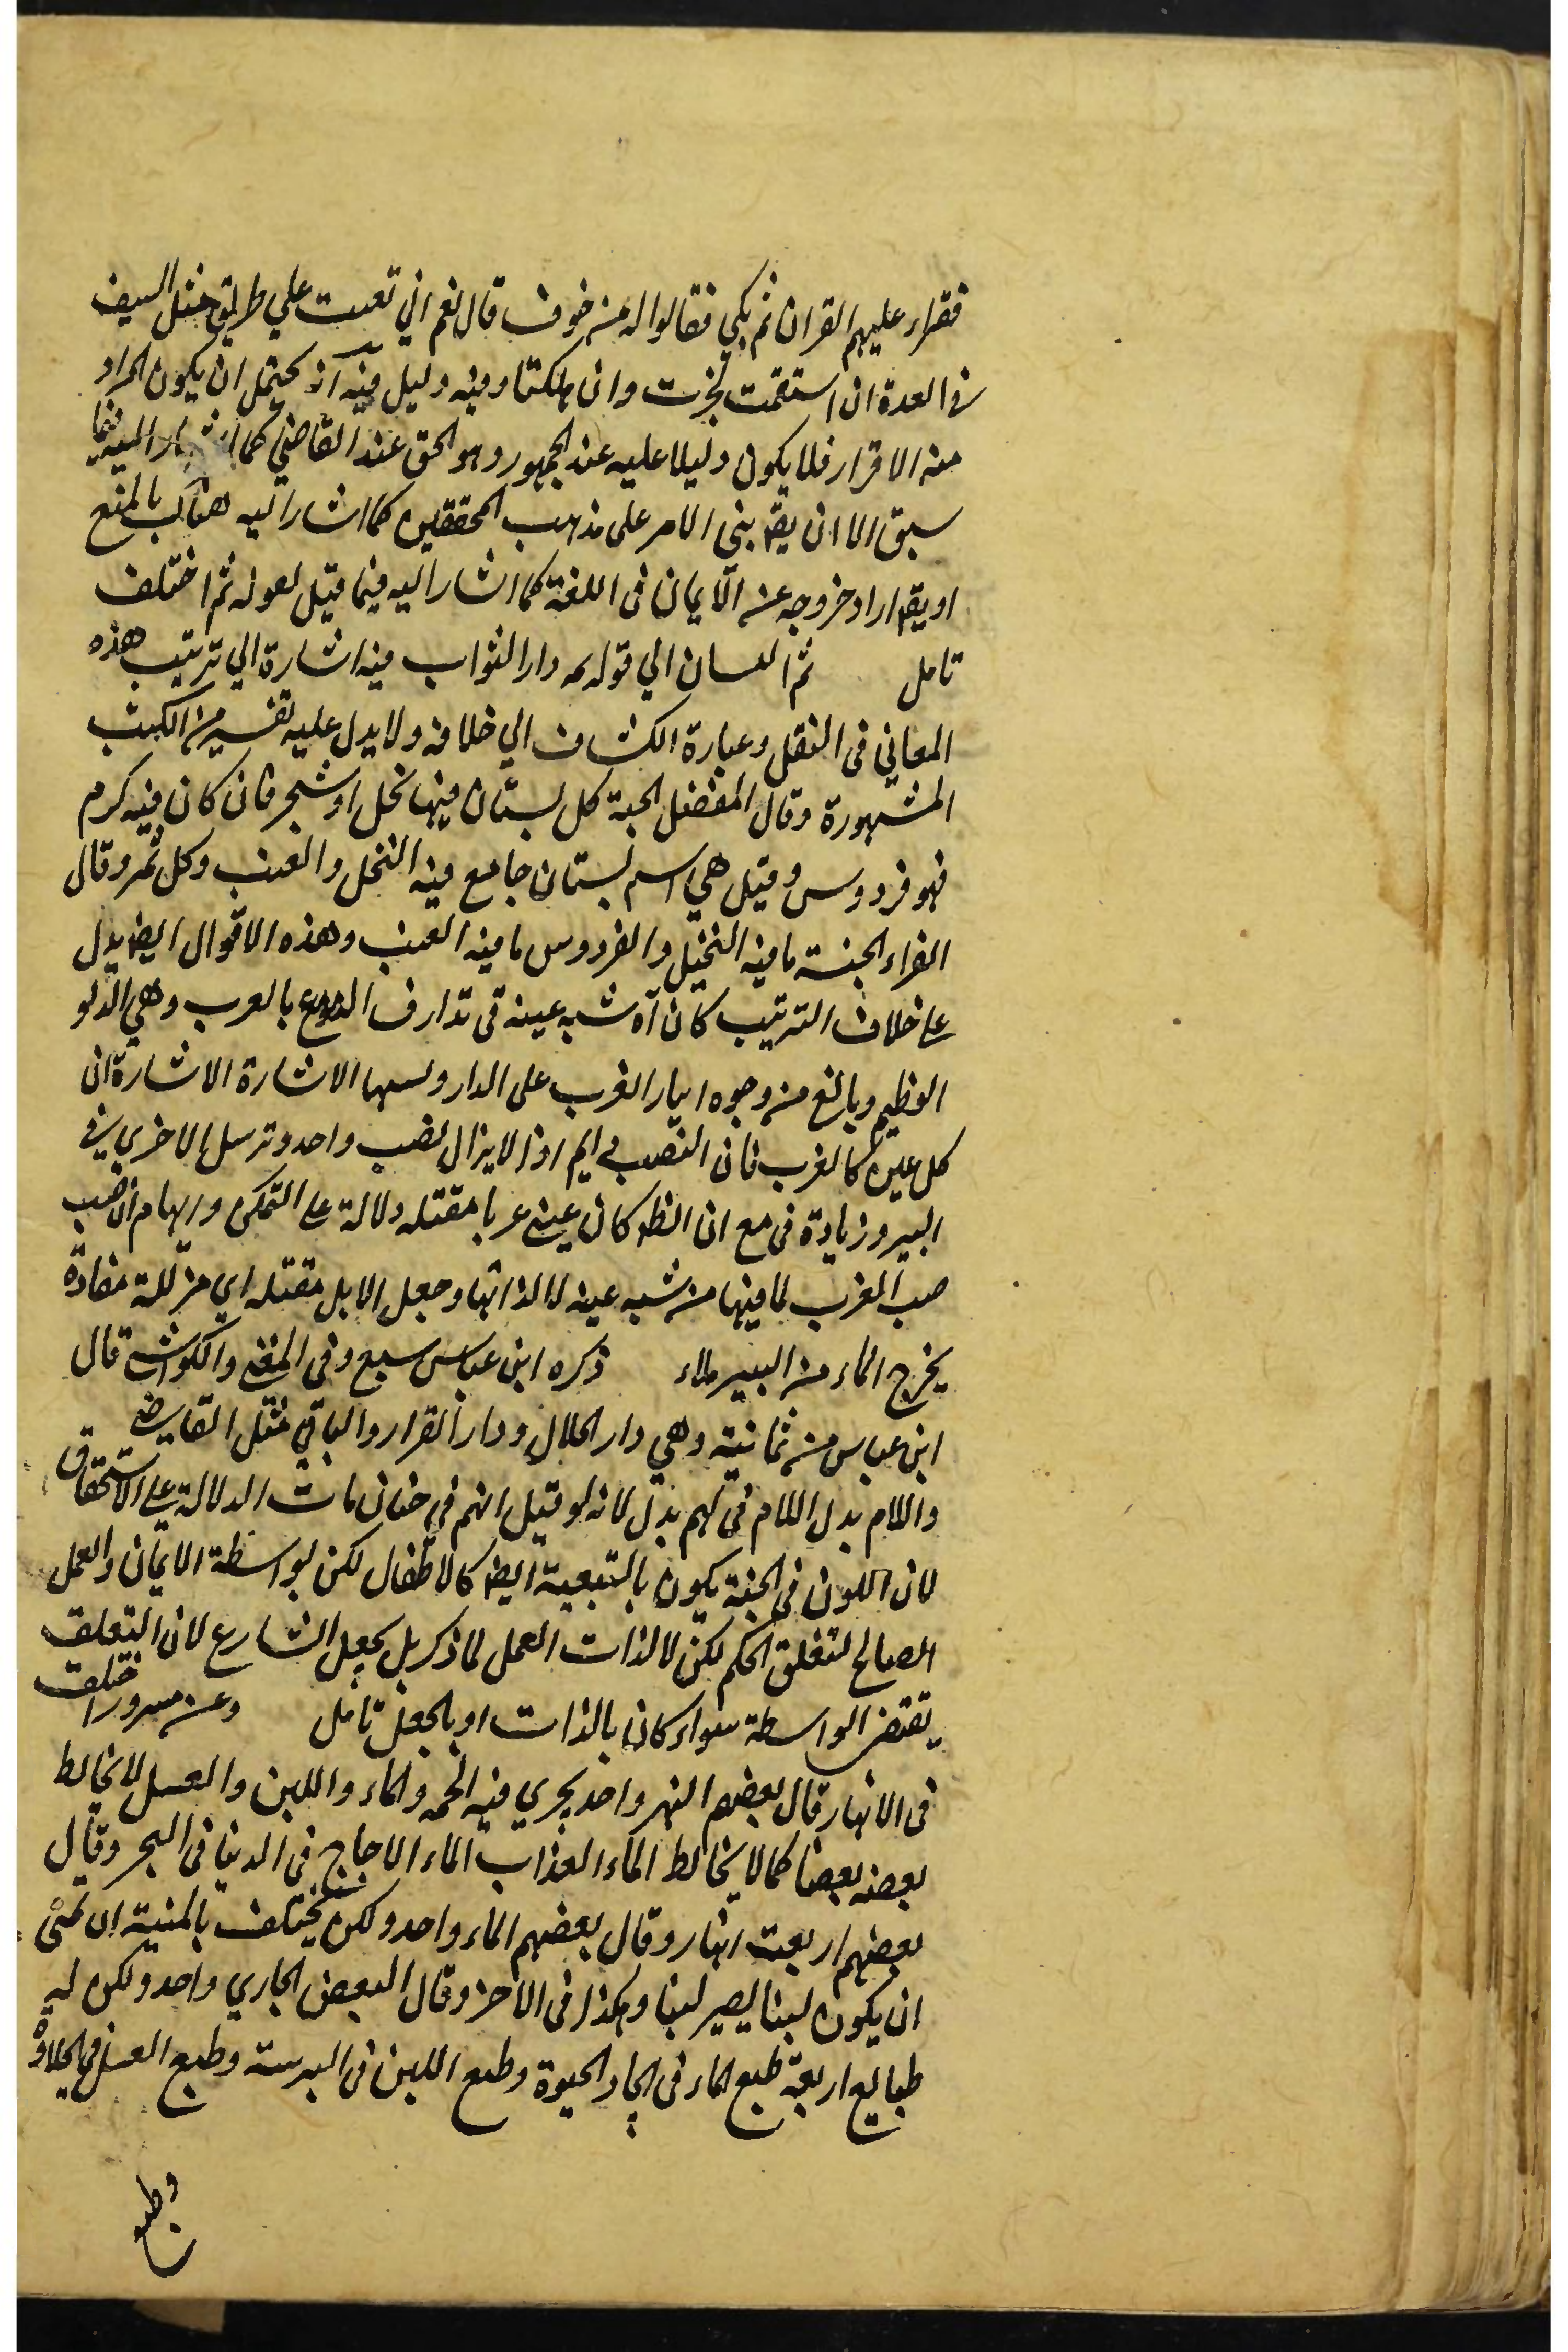 فقراء عليهم القران ثم بكي فقالوا له من خوف قال نعم اني تعبت علي طريق مثل السيف
في العدة ان استقمت نجزت وان ملكتا وفيه دليل فيه انه يحتمل ان يكون المراد
منه الاقرار فلا يكون دليلا عليه عند الجمهور وهو الحق عند القاضي كما اشار اليه فيما
سبق الا ان يقم بنى الامر على مذهب المحققين كما اشار اليه هناك بالمنع
او يقم اراد خروجه عن الايمان فى اللغة كما اشار اليه فيما قيل لقوله ثم اختلف
تامل ثم البستان الي قوله دار الثواب فيه اشارة الي ترتيب هذه
المعاني فى النقل وعبارة الكشاف الي خلافه ولا يدل عليه تفسير من الكتب
المشهورة وقال المفضل الجنة كل بستان فيها نخل او شجر فان كان فيه كرم
فهو فردوس وقيل هي اسم بستان جامع فيه النخل والعنب وكل ثمر وقال
الفراء الجنة ما فيه النخيل والفردوس ما فيه العنب وهذه الاقوال ايضا يدل
على خلاف الترتيب كان اه شبه عينه فى تذارف الدموع بالعرب وهي الدلو
العظيم وبالغ من وجوه ايثار الغرب على الدار الاشارة الاشارة ان
كل عين كالغرب فان النصب اذ لا يزال نصب واحد وترسل الاخري في
البير وزيادة في مع ان الظ كان عيني عربا مقتله دلالة على التمكن وايهام ان صب
صب المغرب لما فيها من شبه عينه لا لذاتها وجعل الابل مقتله اي مزللة منقادة
يخرج الماء من البير ملاء ذكره ابن عباس سبع وفي المغني والكواشي قال
ابن عباس من ثمانية وهي دار الجلال ودار القرار والباقي مثل القاضي
واللام بدل اللام فى لهم بدل لانه لو قيل انهم في جنان مات الدلالة على الاستحقاق
لان الكون فى الجنة يكون بالتبعية ايضا كالاطفال لكن بواسطة الايمان والعمل
الصالح لتعلق الحكم لكن لا لذات العمل لما ذكر بل بجعل الشارع لان التعلق
يقتضي الواسطة سواء كان بالذات او بالجعل تامل وعن مسرور اختلف
فى الانهار قال بعضهم النهر واحد يجري فيه الخمر والماء واللبن والعسل لا يخالط
بعضه بعضا كما لا يخالط الماء العذاب الماء الاجاج في الدنيا في البحر وقال
بعضهم اربعت انهار وقال بعضهم الماء واحد ولكن يختلف بالمنية ان تمنى
ان يكون لبنا يصير لبنا وهكذا فى الاخر وقال البعض الجاري واحد ولكن له
طبايع اربعة طبع الماء فى ايجاد الحيوة وطبع اللبن فى التربية وطبع العسل في الحلاوة
وطبع